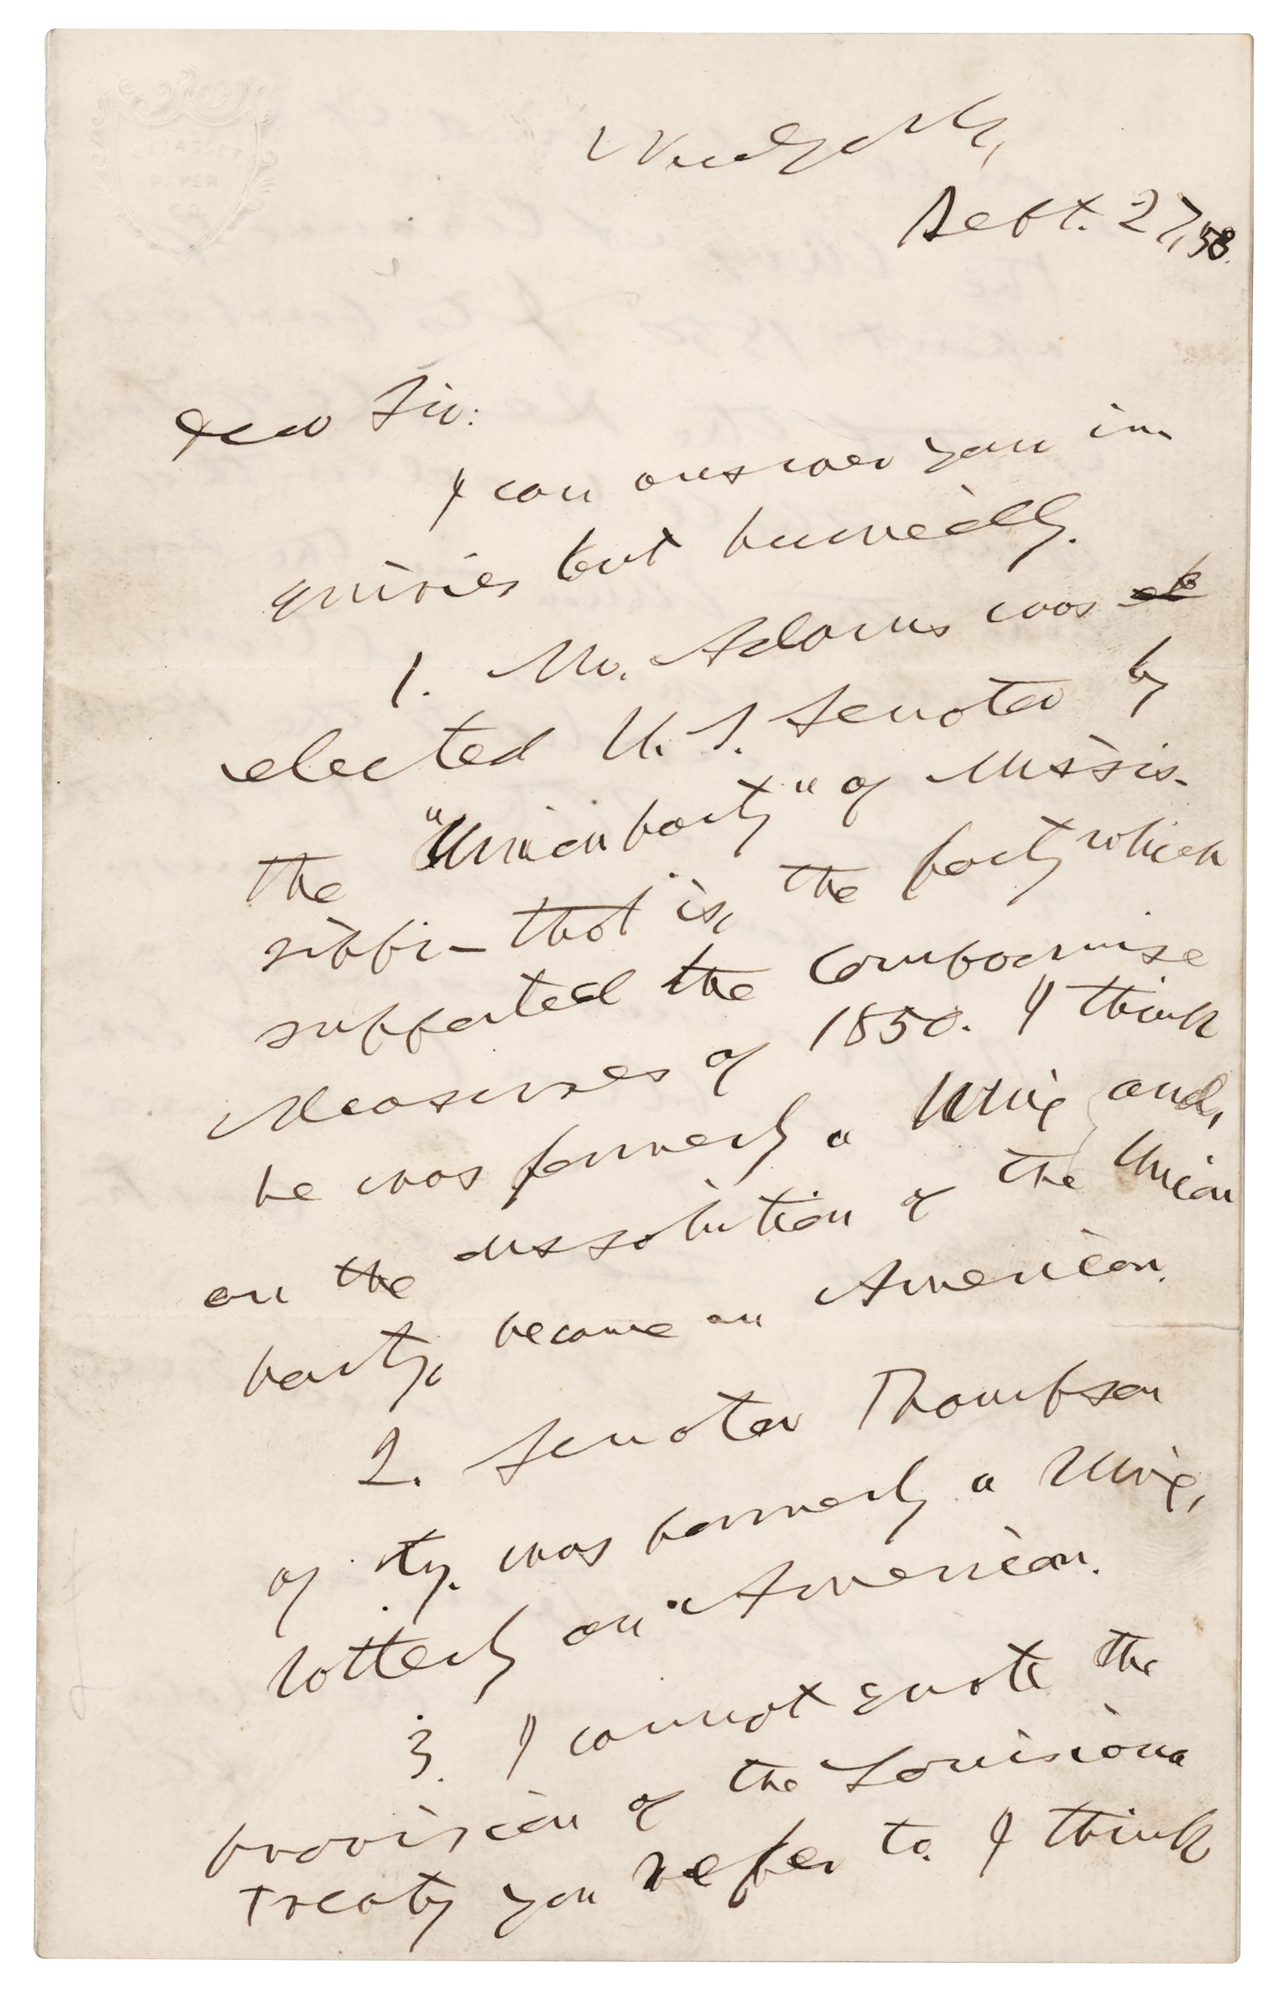 Sept. 27, '58.
Dear Sir:
I can answer your in-
quiries but hurriedly.
1. Mr. Adams was
elected U. S. Senator by
the "Union party" of Missis-
sippi — that is, the party which
supported the Compromise
Measures of 1850. I think
he was formerly a Whig and,
on the dissolution of the Union
party, became an American.
2. Senator Thompson
of Ky. was formerly a Whig,
latterly an American.
3. I cannot quote the
provision of the Louisiana
treaty you refer to. I think